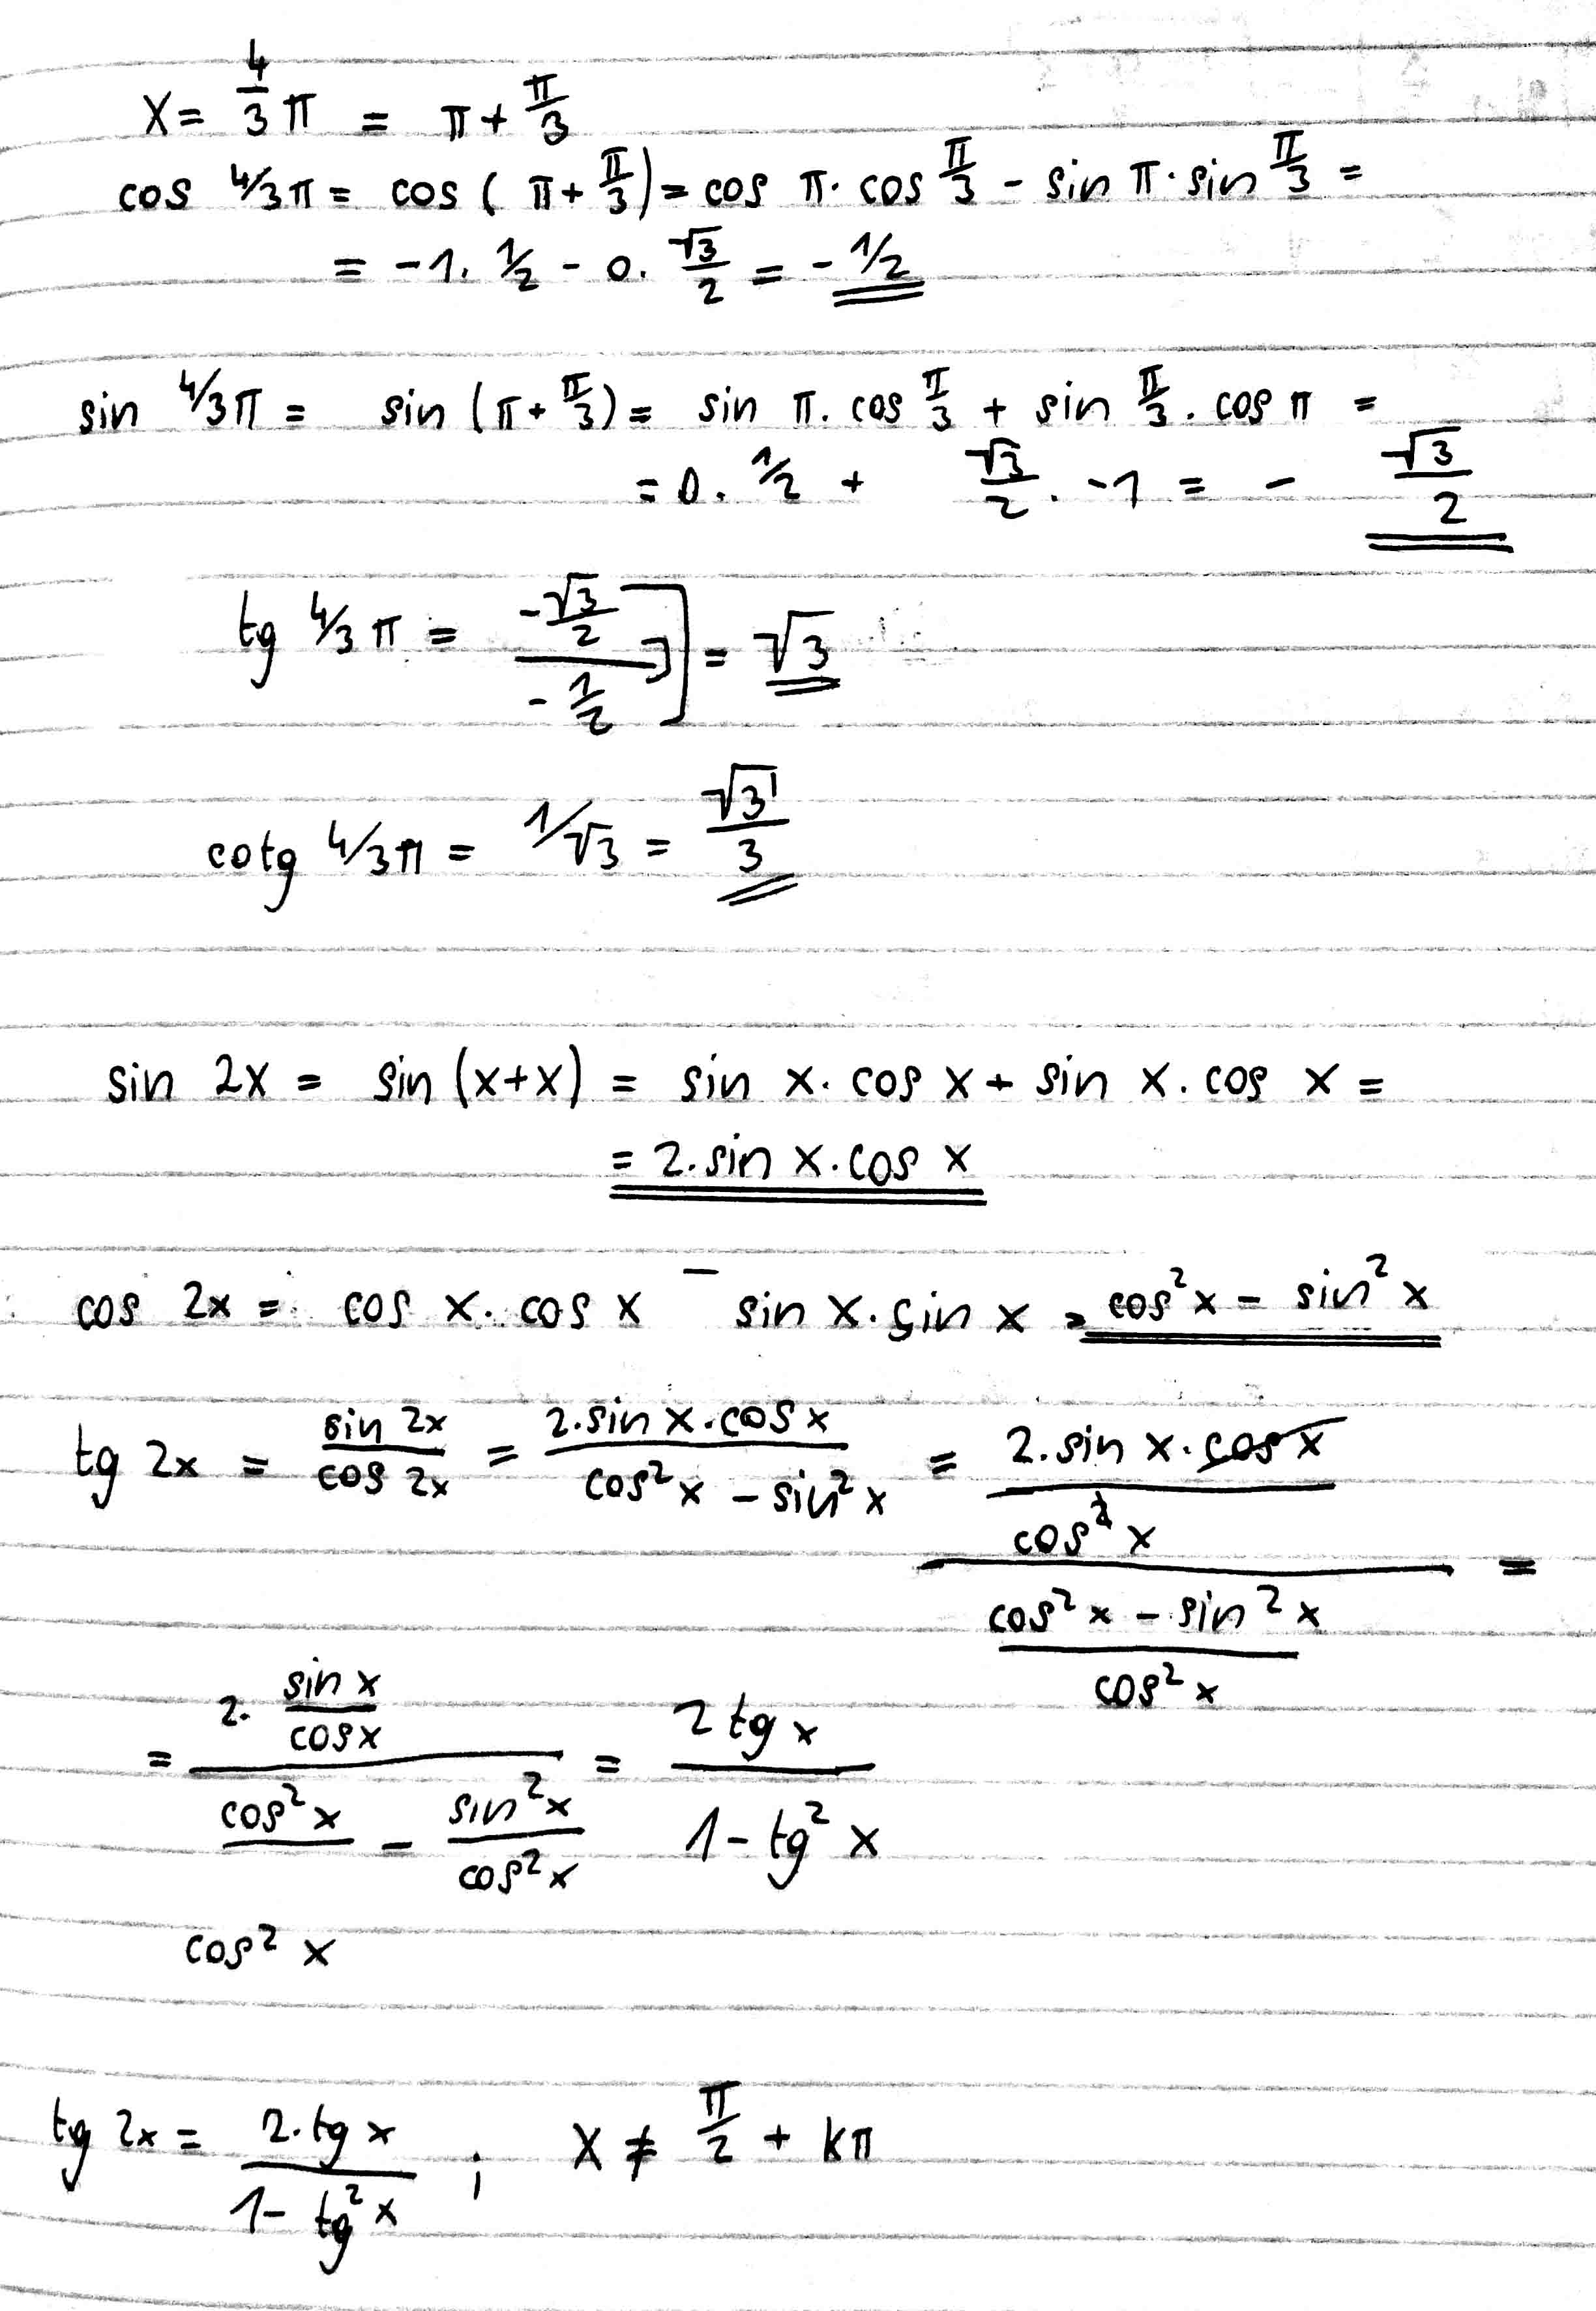 x = 4/3 π = π + π/3
cos 4/3π = cos ( π + π/3 ) = cos π · cos π/3 - sin π · sin π/3 =
= -1 · 1/2 - 0 · √3/2 = - 1/2
sin 4/3π = sin (π + π/3) = sin π · cos π/3 + sin π/3 · cos π =
= 0 · 1/2 + √3/2 · -1 = - √3/2
tg 4/3 π = (-√3/2)/(-1/2) ] = √3
cotg 4/3π = 1/√3 = √3/3
sin 2x = sin (x+x) = sin x · cos x + sin x · cos x =
= 2 · sin x · cos x
cos 2x = cos x · cos x - sin x · sin x = cos²x - sin²x
tg 2x = sin 2x / cos 2x = (2 · sin x · cos x)/(cos²x - sin²x) = ((2 · sin x · cos x)/(cos²x))/((cos²x - sin²x)/(cos²x)) =
= (2 · sin x/cos x)/(cos²x/cos²x - sin²x/cos²x) = (2 tg x)/(1 - tg²x)
tg 2x = (2 · tg x)/(1 - tg²x) ; x ≠ π/2 + kπ